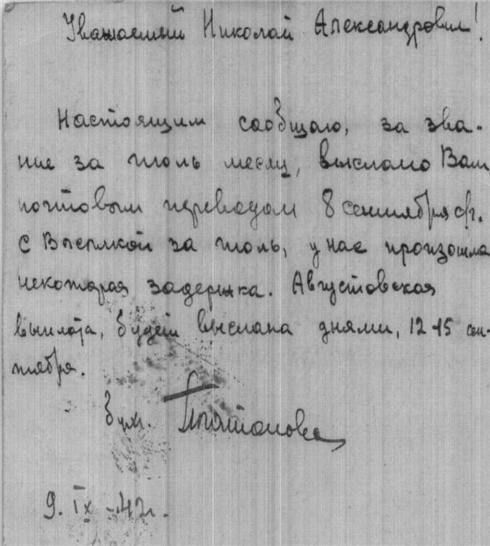 Уважаемый Николай Александрович!
Настоящим сообщаю, за зва-
ние за июль месяц, выслано Вам
почтовым переводом 8 сентября с/г.
с Высылкой за июль, у нас произошла
некоторая задержка. Августовская
выплата, будет выслана днями, 12-15 сен-
тября.
9. IX - 42 г.